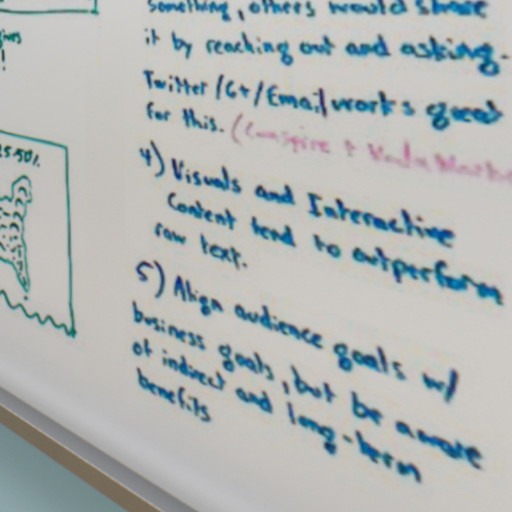 something, others would share
it by reaching out and asking.
Twitter/G+/Email works great
for this.
4) Visuals and Interactive
Content tend to outperform
raw text.
5) Align audience goals w/
business goals, but be aware
of indirect and long-term
benefits
!
25-50%